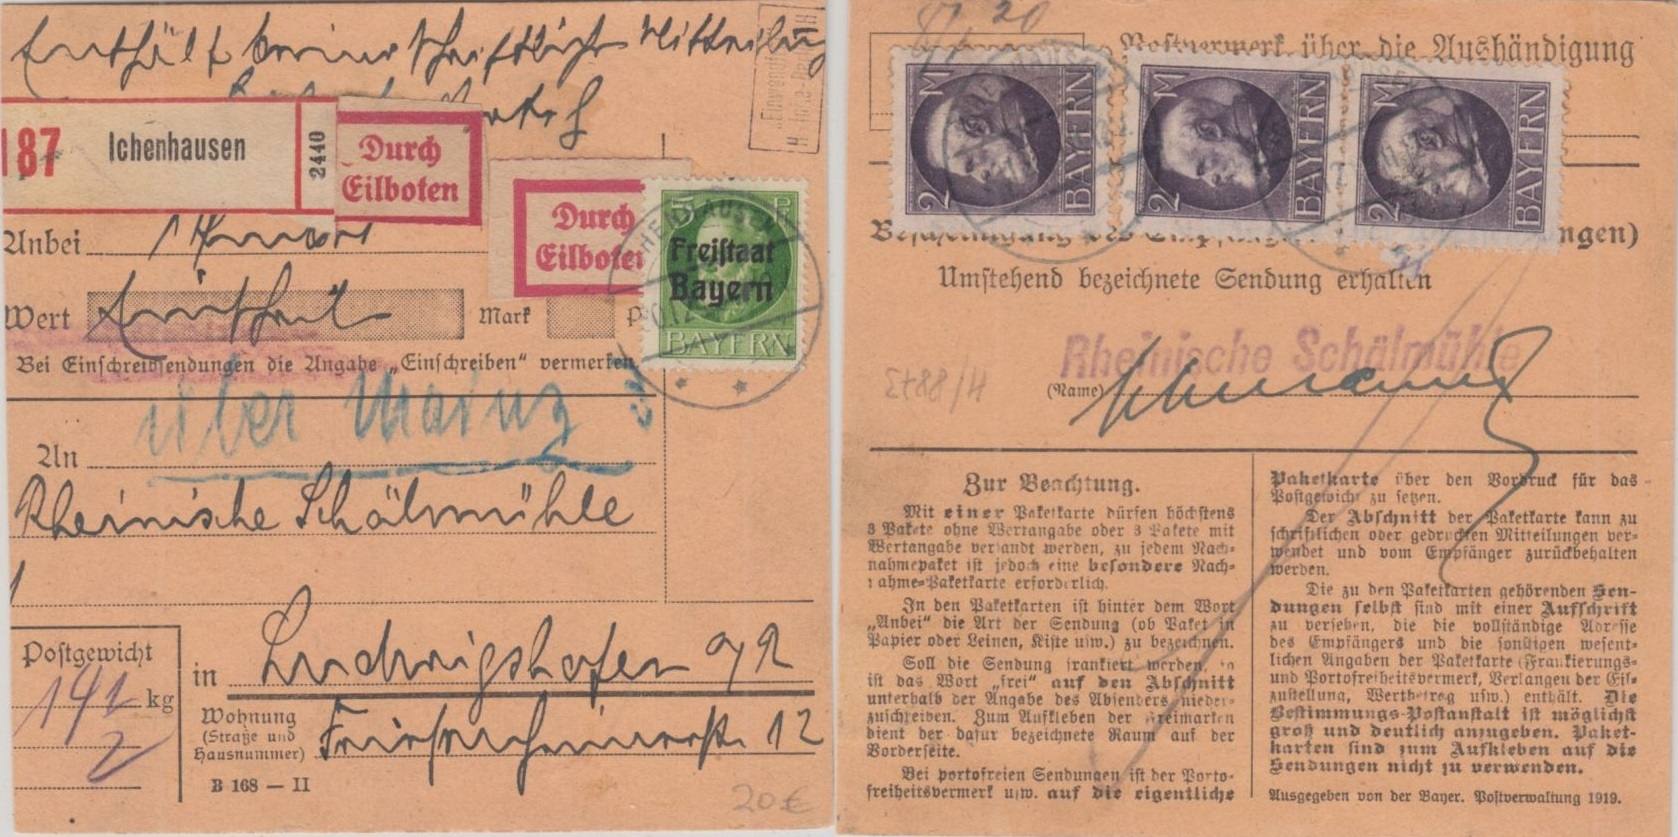 Enthält keine schriftliche Mitteilung
187 Ichenhausen 2440
Durch
Eilboten
Durch
Eilboten
5 Pf
Freistaat
Bayern
BAYERN
Anbei
Wert
Mark
Bei Einschreibsendungen die Angabe „Einschreiben“ vermerken
über Mainz
An
Rheinische Schälmühle
Postgewicht
kg
in Ludwigshafen a/R
Wohnung
(Straße und
Hausnummer)
12
B 168 — II
20€
20
Postvermerk über die Aushändigung
2 M BAYERN
2 M BAYERN
2 M BAYERN
Umstehend bezeichnete Sendung erhalten
Rheinische Schälmühle
(Name)
Zur Beachtung.
Mit einer Paketkarte dürfen höchstens
3 Pakete ohne Wertangabe oder 3 Pakete mit
Wertangabe versandt werden, zu jedem Nach-
nahmepaket ist jedoch eine besondere Nach-
nahme-Paketkarte erforderlich.
In den Paketkarten ist hinter dem Wort
„Anbei“ die Art der Sendung (ob Paket in
Papier oder Leinen, Kiste usw.) zu bezeichnen.
Soll die Sendung frankiert werden, so
ist das Wort „frei“ auf den Abschnitt
unterhalb der Angabe des Absenders nieder-
zuschreiben. Zum Aufkleben der Freimarken
dient der dafür bezeichnete Raum auf der
Vorderseite.
Bei portofreien Sendungen ist der Porto-
freiheitsvermerk usw. auf die eigentliche
Paketkarte über den Vordruck für das
Postgewicht zu setzen.
Der Abschnitt der Paketkarte kann zu
schriftlichen oder gedruckten Mitteilungen ver-
wendet und vom Empfänger zurückbehalten
werden.
Die zu den Paketkarten gehörenden Sen-
dungen selbst sind mit einer Aufschrift
zu versehen, die die vollständige Adresse
des Empfängers und die sonstigen wesent-
lichen Angaben der Paketkarte (Frankierungs-
und Portofreiheitsvermerk, Verlangen der Eil-
zustellung, Wertbetrag usw.) enthält. Die
Bestimmungs-Postanstalt ist möglichst
groß und deutlich anzugeben. Paket-
karten sind zum Aufkleben auf die
Sendungen nicht zu verwenden.
Ausgegeben von der Bayer. Postverwaltung 1919.